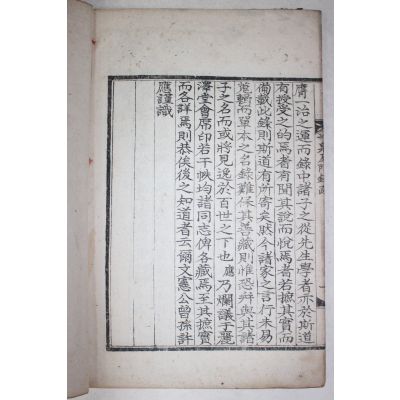 膺一治之運而錄中諸子之從先生學者亦於斯道
有授受之的焉者有聞其說而悅焉者若摭其實而
備載此錄則斯道有所寄矣然今諸家之言行未易
蒐輯而單本之名錄難保其善藏則惟恐幷與其諸
子之名而或將見逸於百世之下也應乃爛議于麗
澤堂會席印若干帙均諸同志俾各藏焉至其摭實
而各詳焉則恭俟後之知道者云爾文憲公曾孫許
應謹識